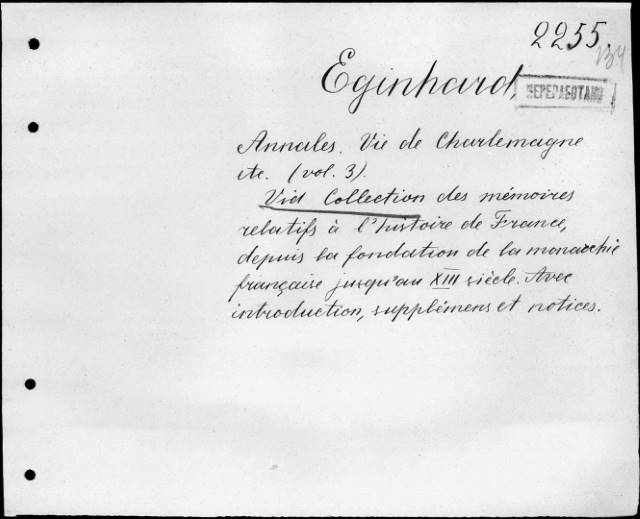 2255.
134
Eginhard,
ПЕРЕРАБОТАНО
Annales. Vie de Charlemagne
etc. (vol. 3).
Vid Collection des mémoires
relatifs à l'histoire de France,
depuis la fondation de la monarchie
française jusqu'au XIII siècle. Avec
introduction, supplémens et notices.